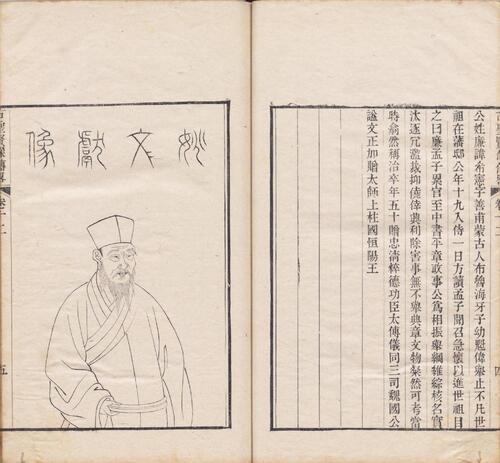 公姓廉諱希憲字善甫蒙古人布魯海牙子幼魁偉舉止不凡世
祖在藩邸公年十九入侍一日方讀孟子聞召急懷以進世祖目
之曰廉孟子累官至中書平章政事公爲相振舉綱維綜核名實
汰逐冗濫裁抑僥倖興利除害事無不舉典章文物粲然可考當
時翕然稱治卒年五十贈忠淸粹德功臣太傅儀同三司魏國公
諡文正加贈太師上柱國恒陽王
姚文獻像
卷十二
五